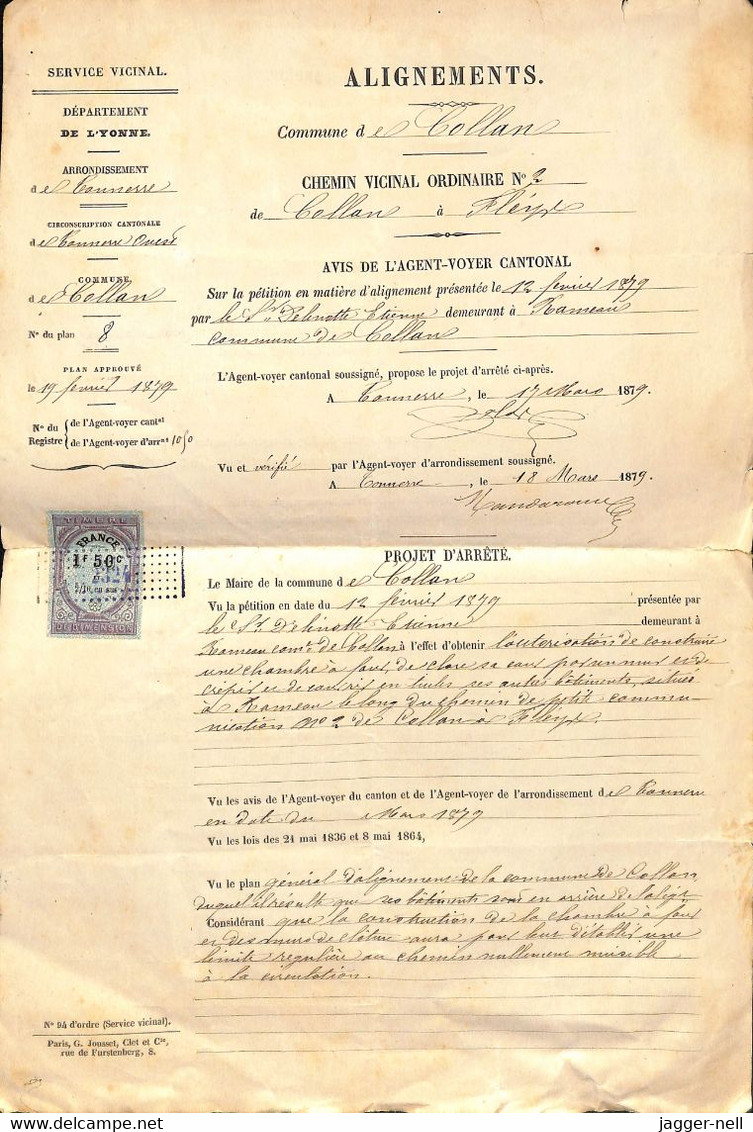 SERVICE VICINAL.
DÉPARTEMENT
DE L'YONNE.
ARRONDISSEMENT
de Tonnerre
CIRCONSCRIPTION CANTONALE
de Tonnerre Ouest
COMMUNE
de Collan
N° du plan 8
PLAN APPROUVÉ
le 19 février 1879
N° du Registre { de l'Agent-voyer cantal
{ de l'Agent-voyer d'arrnt 1050
ALIGNEMENTS.
Commune de Collan
CHEMIN VICINAL ORDINAIRE N° 2
de Collan à Fléys
AVIS DE L'AGENT-VOYER CANTONAL
Sur la pétition en matière d'alignement présentée le 12 février 1879
par le Sr. Delinotte Etienne demeurant à Rameau
commune de Collan
L'Agent-voyer cantonal soussigné, propose le projet d'arrêté ci-après.
A Tonnerre, le 17 Mars 1879.
Vu et vérifié par l'Agent-voyer d'arrondissement soussigné.
A Tonnerre, le 18 Mars 1879.
TIMBRE
FRANCE
1F 50c
2/10 en sus
DIMENSION
PROJET D'ARRÊTÉ.
Le Maire de la commune de Collan
Vu la pétition en date du 12 février 1879 présentée par
le Sr. Delinotte Etienne demeurant à
Rameau comne de Collan à l'effet d'obtenir l'autorisation de construire
une chambre à four, de clore sa cour par un mur et de
crépir et de couvrir en tuiles ses autres bâtiments, situés
à Rameau le long du chemin de petite commu-
nication No 2 de Collan à Fléys.
Vu les avis de l'Agent-voyer du canton et de l'Agent-voyer de l'arrondissement de Tonnerre
en date du Mars 1879
Vu les lois des 21 mai 1836 et 8 mai 1864,
Vu le plan général d'alignement de la commune de Collan
duquel il résulte que ses bâtiments sont en arrière de l'aligt
Considérant que la construction de la chambre à four
et des murs de clôture aura pour but d'établir une
limite regulière au chemin nullement nuisible
à la circulation.
N° 94 d'ordre (Service vicinal).
Paris, G. Jousset, Clet et Cie,
rue de Furstenberg, 8.
jagger-nell